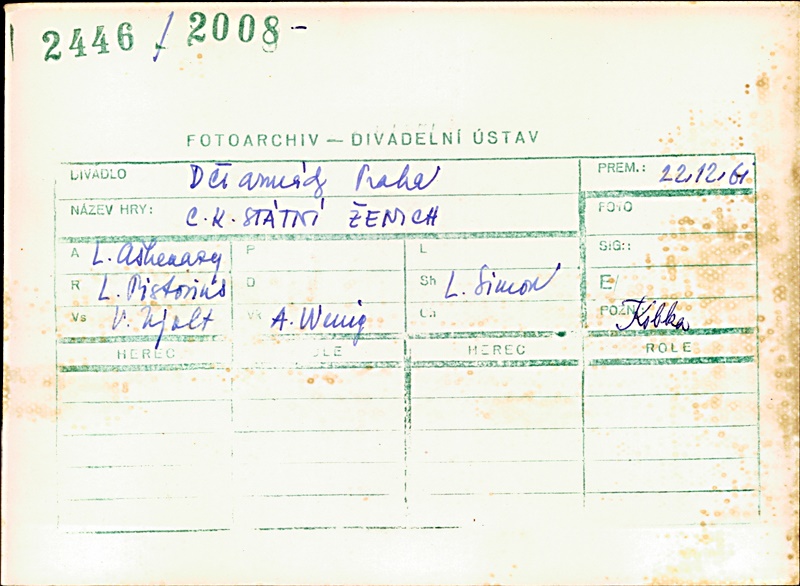 2446 / 2008 -
FOTOARCHIV — DIVADELNÍ ÚSTAV
DIVADLO Dčs armády Praha PREM.: 22.12.61
NÁZEV HRY: C.K. STÁTNÍ ŽENICH FOTO
A L. Ashenazy P L SIG.:
R L. Pistorius D Sh L. Simon E/
Vs V. Nývlt A. Wenig POZN Kibka
HEREC ROLE HEREC ROLE